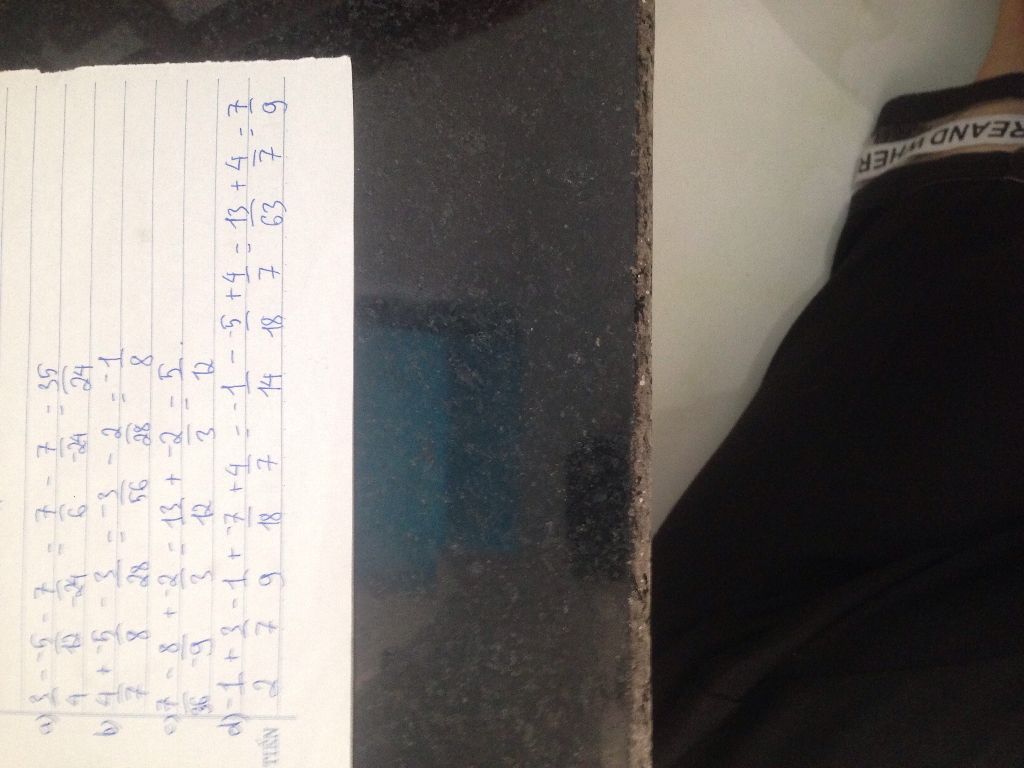 a) 3/4 - -5/12 - 7/-24 = 7/6 - 7/-24 = 35/24
b) 4/7 + -5/8 - 3/28 = -3/56 - 2/28 = -1/8
c) 7/36 - 8/-9 + -2/3 = 13/12 + -2/3 = 5/12
d) -1/2 + 3/7 - 1/9 + -7/18 + 4/7 = -1/14 - -5/18 + 4/7 = 13/63 + 4/7 = 7/9
TIẾN
REAND WHER